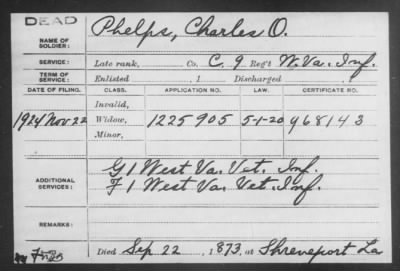 DEAD
NAME OF SOLDIER: Phelps, Charles O.
SERVICE: Late rank, Co. C. 9 Reg't W. Va. Inf.
TERM OF SERVICE: Enlisted , 1 Discharged , 1
DATE OF FILING. CLASS. APPLICATION NO. LAW. CERTIFICATE NO.
Invalid,
1924 Nov 22 Widow, 1225905 5-1-20 968143
Minor,
ADDITIONAL SERVICES: G 1 West Va. Vet. Inf.
F 1 West Va. Vet. Inf.
REMARKS:
Died Sep 22, 1873, at Shreveport La